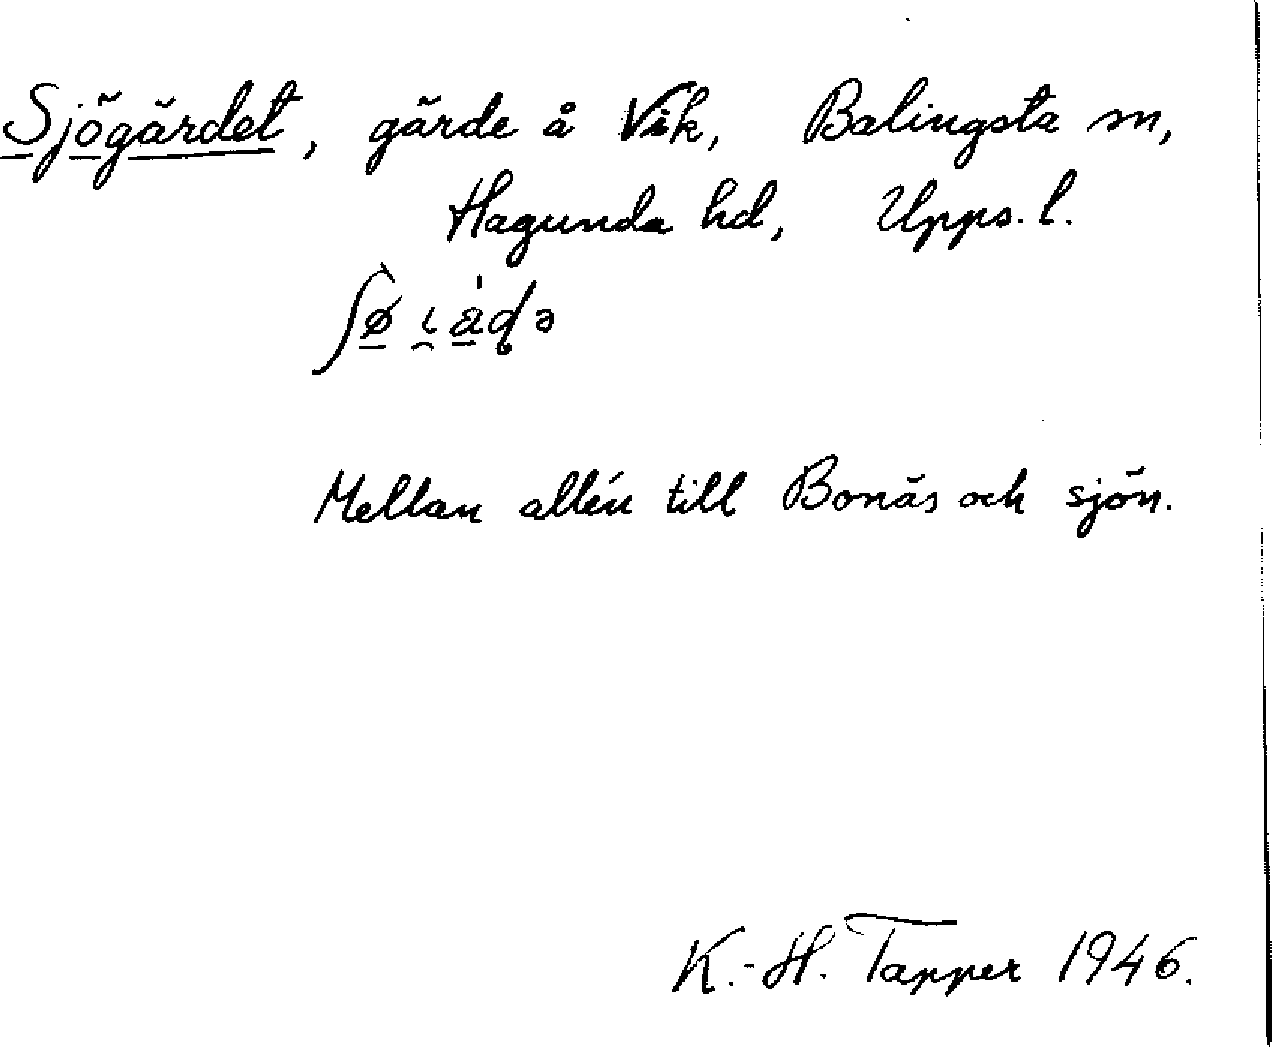 Sjögärdet, gärde å Vik, Balingsta sn,
Hagunda hd, Upps. l.
Mellan allén till Bonäs och sjön.
K.-H. Tapper 1946.